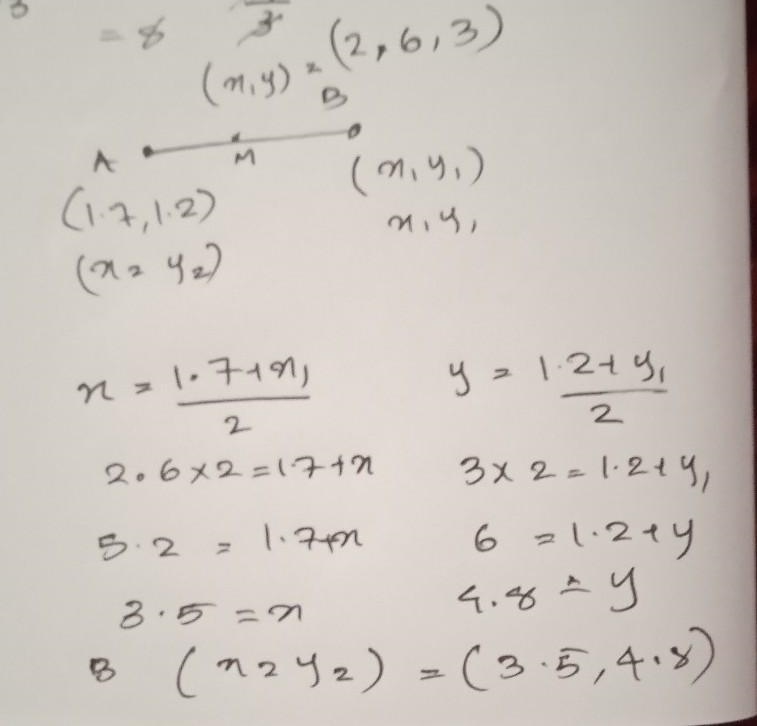 = 8
(x,y) = (2,6,3)
B
A M
(x, y₁)
(1.7, 1.2)
x, y₁
(x₂ y₂)
x = 1.7+x₁/2 y = 1.2+y₁/2
2.6×2=1.7+x 3×2=1.2+y₁
5.2 = 1.7+x 6 = 1.2+y
3.5 = x 4.8 = y
B (x₂y₂) = (3.5, 4.8)